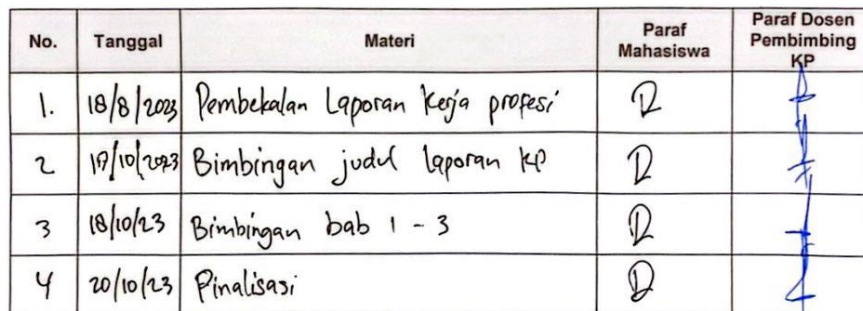 No. Tanggal Materi Paraf Mahasiswa Paraf Dosen Pembimbing KP
1. 18/8/2023 Pembekalan Laporan Kerja profesi
2 17/10/2023 Bimbingan judul laporan KP
3 18/10/23 Bimbingan bab 1 - 3
4 20/10/23 Finalisasi